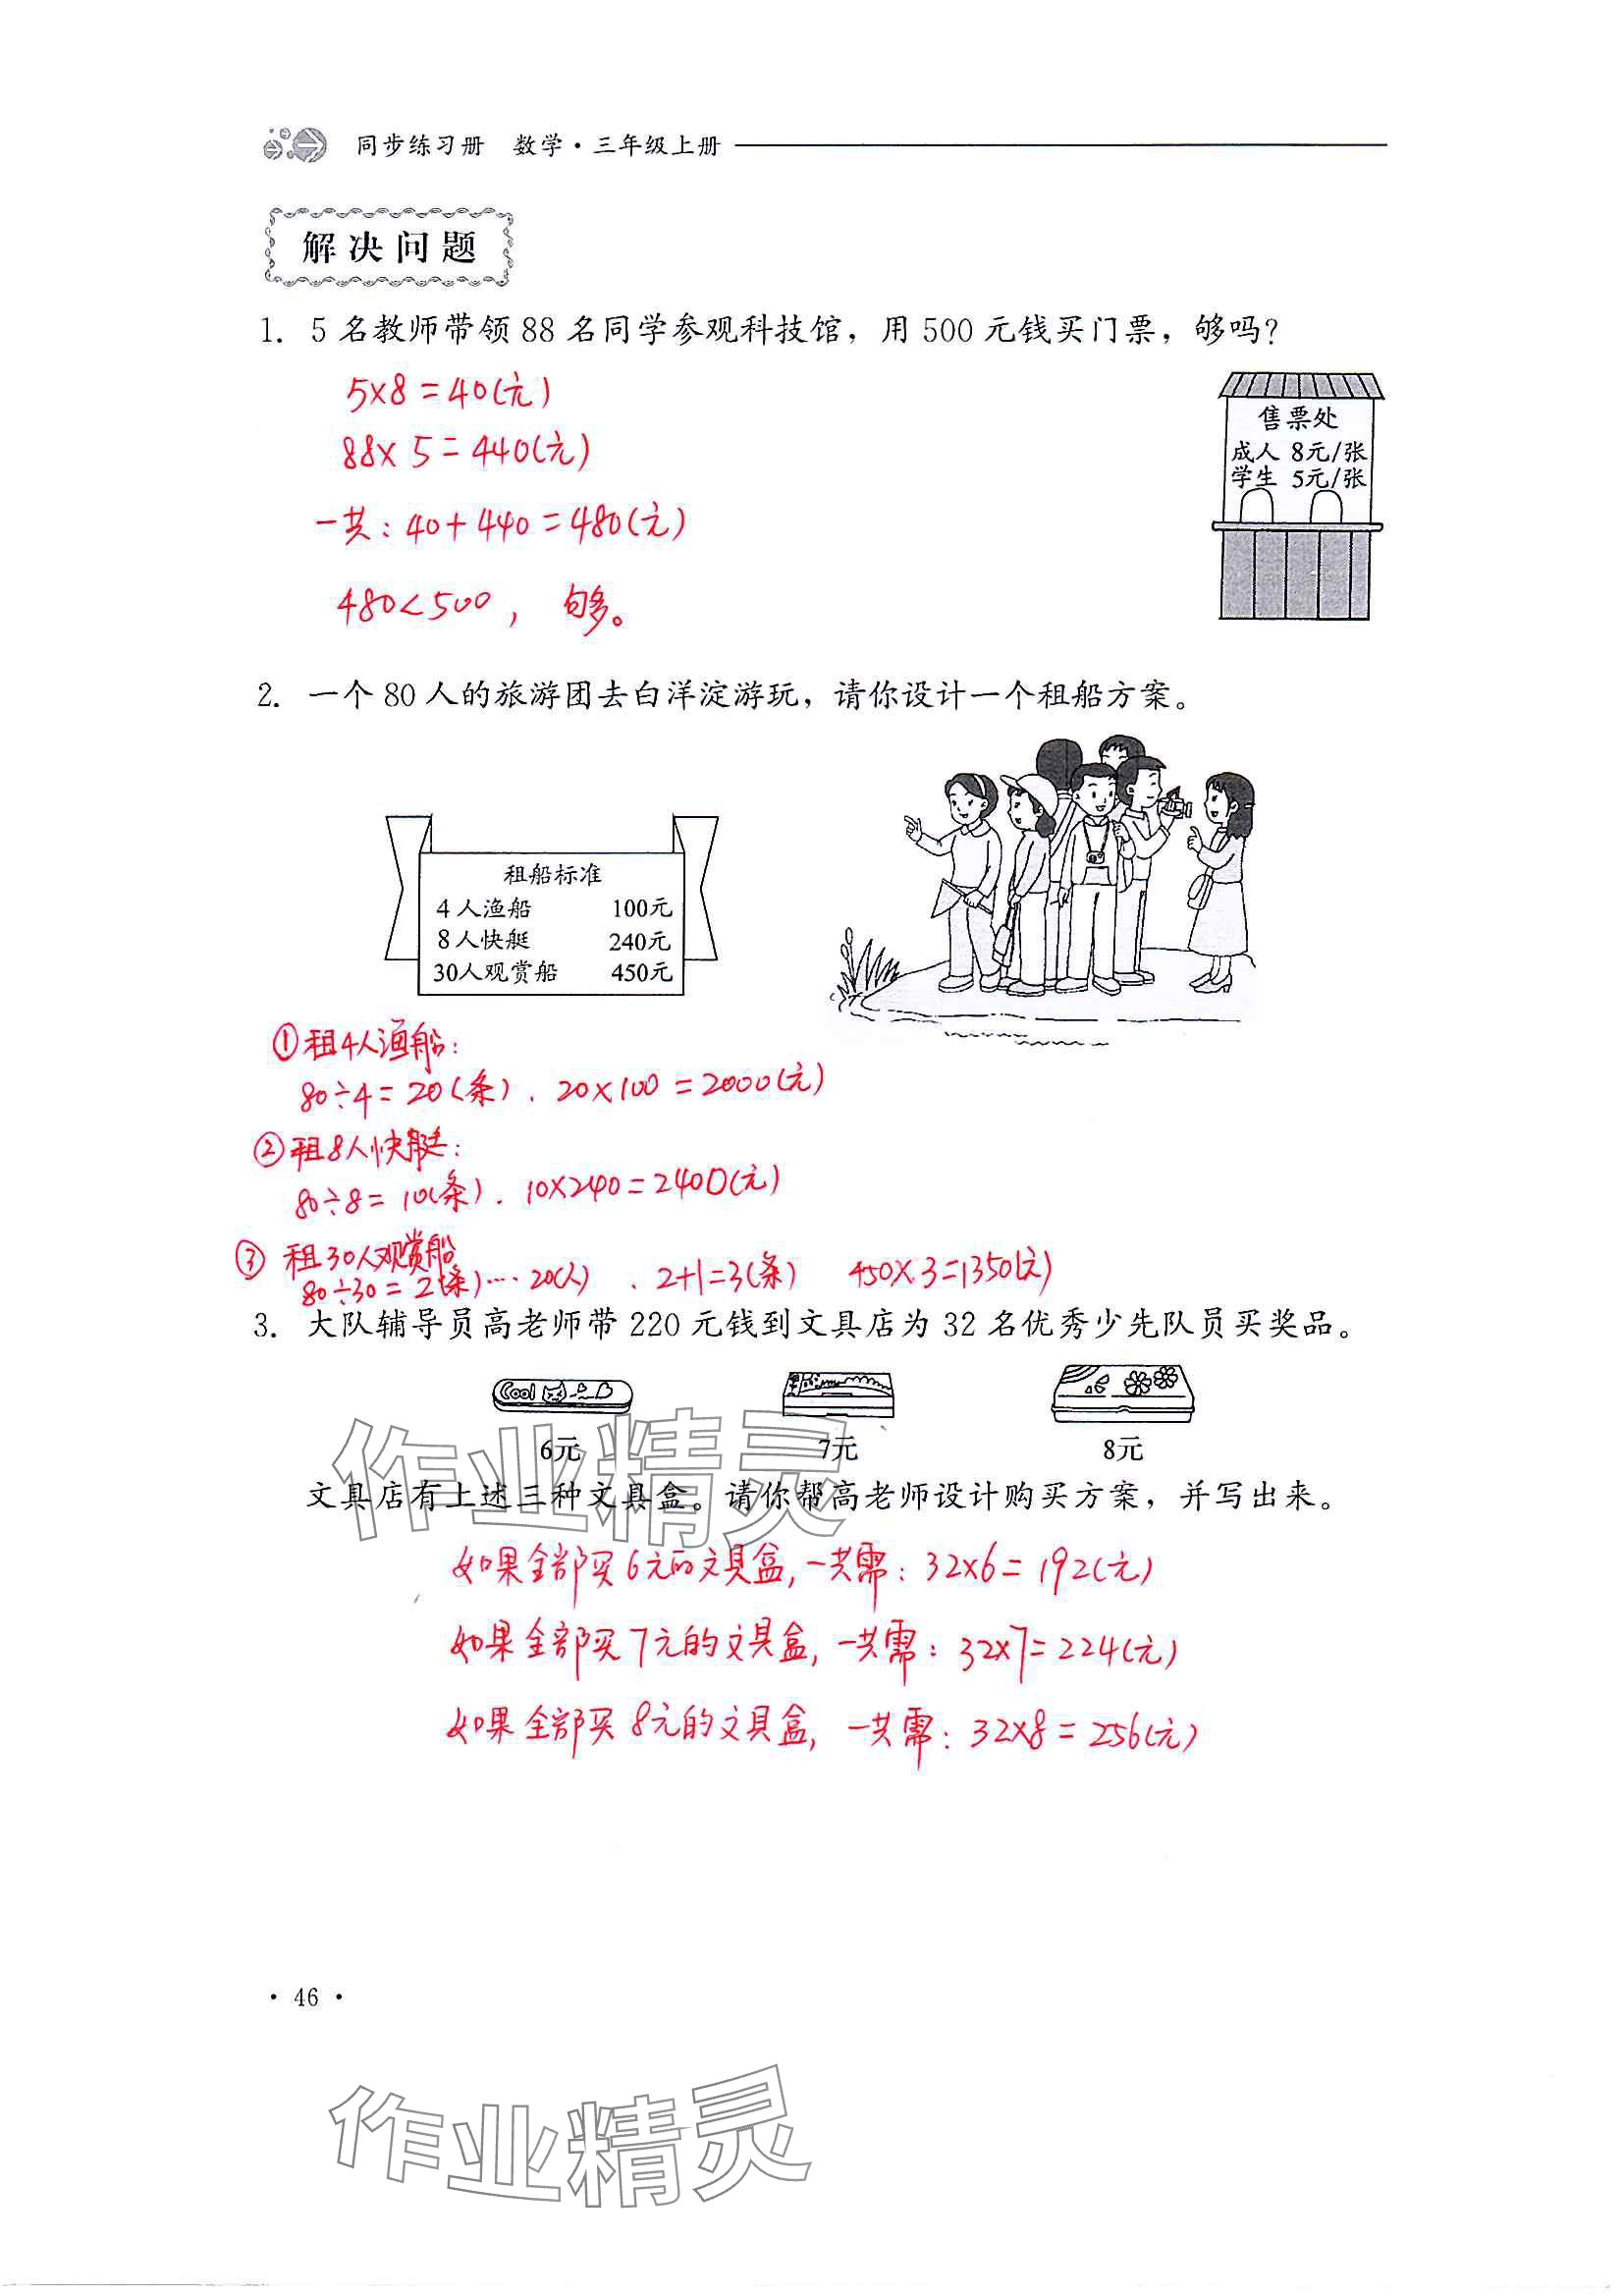 同步练习册 数学·三年级上册
解决问题
1. 5名教师带领88名同学参观科技馆，用500元钱买门票，够吗？
5×8=40(元)
88×5=440(元)
一共：40+440=480(元)
480<500，够。
售票处
成人 8元/张
学生 5元/张
2. 一个80人的旅游团去白洋淀游玩，请你设计一个租船方案。
租船标准
4人渔船 100元
8人快艇 240元
30人观赏船 450元
①租4人渔船：
80÷4=20(条). 20×100=2000(元)
②租8人快艇：
80÷8=10(条). 10×240=2400(元)
③租30人观赏船
80÷30=2(条)…20(人). 2+1=3(条) 450×3=1350(元)
3. 大队辅导员高老师带220元钱到文具店为32名优秀少先队员买奖品。
Cool
6元 7元 8元
文具店有上述三种文具盒。请你帮高老师设计购买方案，并写出来。
如果全部买6元的文具盒，一共需：32×6=192(元)
如果全部买7元的文具盒，一共需：32×7=224(元)
如果全部买8元的文具盒，一共需：32×8=256(元)
作业精灵
·46·
作业精灵